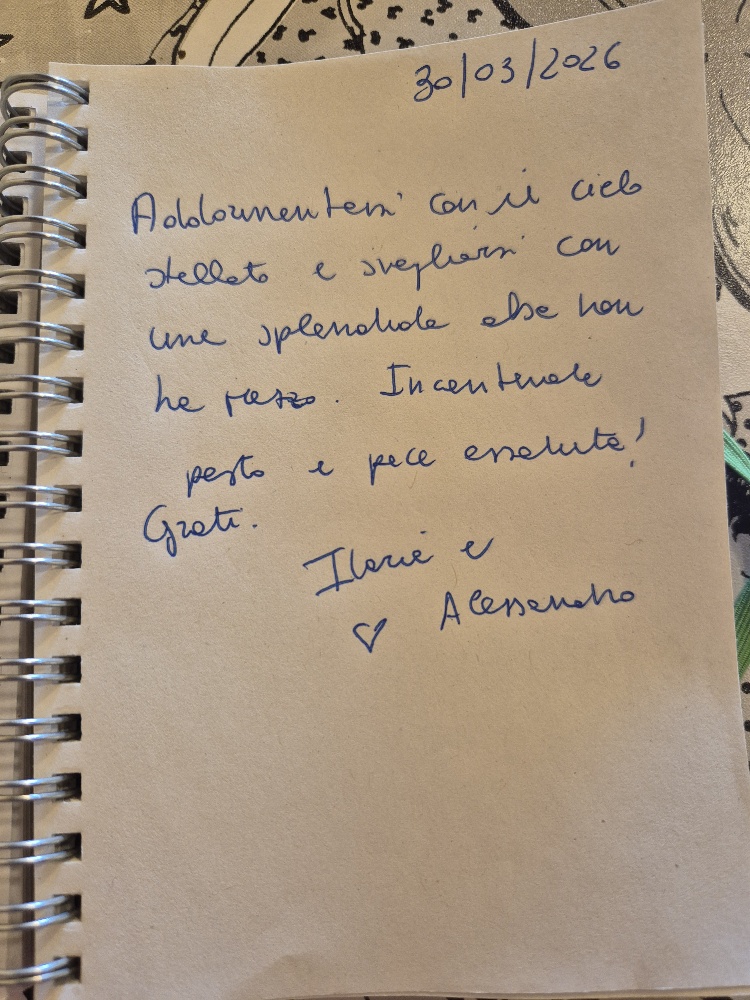 30/03/2026
Addormentarsi con il cielo
stellato e svegliarsi con
una splendida alba non
ha prezzo. Incantevole
posto e pace assoluta!
Grati.
Ilaria e
♡ Alessandro